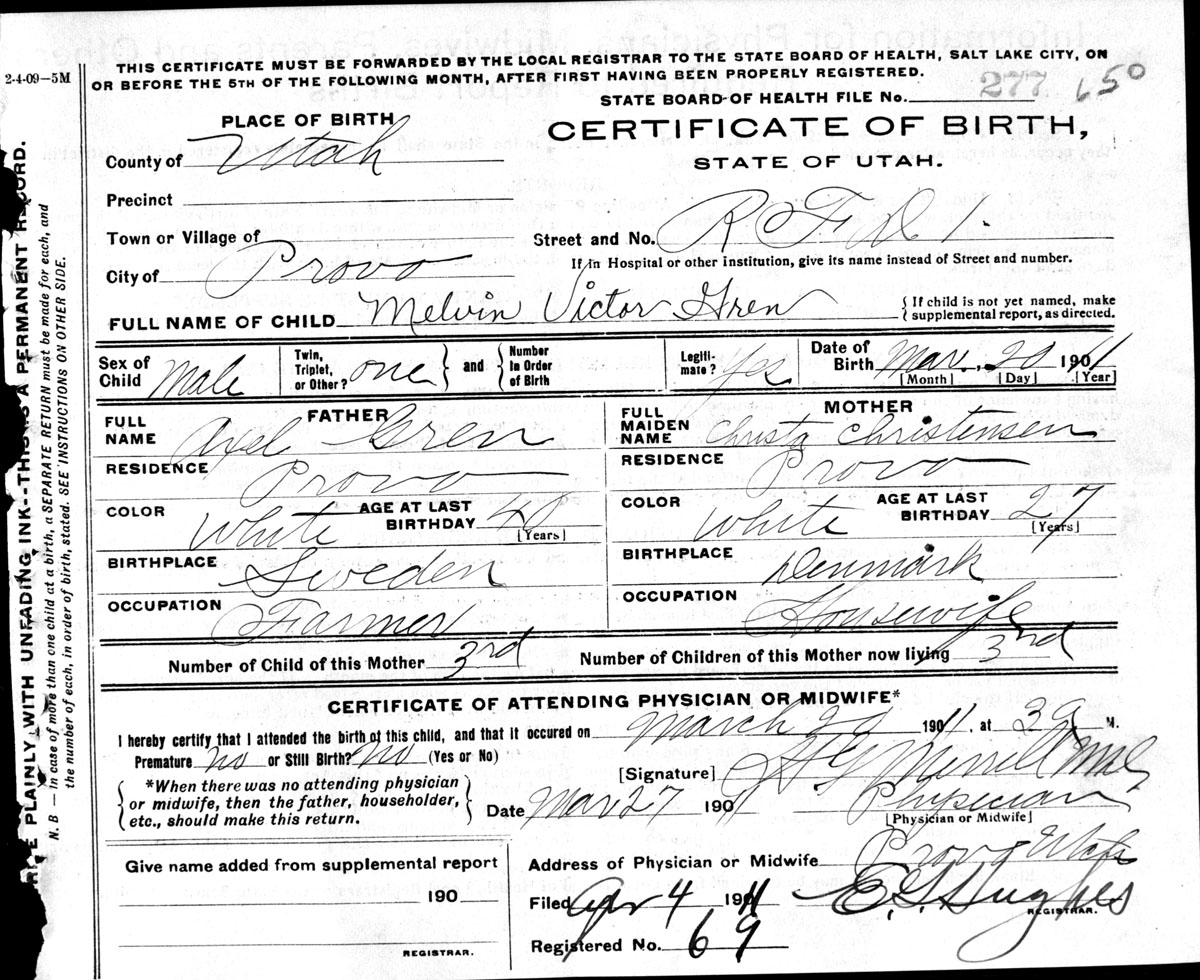 2-4-09—5M
THIS CERTIFICATE MUST BE FORWARDED BY THE LOCAL REGISTRAR TO THE STATE BOARD OF HEALTH, SALT LAKE CITY, ON
OR BEFORE THE 5TH OF THE FOLLOWING MONTH, AFTER FIRST HAVING BEEN PROPERLY REGISTERED.
STATE BOARD OF HEALTH FILE No. 277 650
PLACE OF BIRTH
CERTIFICATE OF BIRTH,
STATE OF UTAH.
County of Utah
Precinct
Town or Village of
Street and No. R F D 1.
City of Provo
If in Hospital or other institution, give its name instead of Street and number.
FULL NAME OF CHILD Melvin Victor Gren
{ If child is not yet named, make
supplemental report, as directed.
Sex of Child Male
Twin, Triplet, or Other? one } and { Number In Order of Birth
Legitimate? Yes
Date of Birth Mar. 20 1911
[Month] [Day] [Year]
FATHER
FULL NAME Axel Gren
RESIDENCE Provo
COLOR White AGE AT LAST BIRTHDAY 40
[Years]
BIRTHPLACE Sweden
OCCUPATION Farmer
MOTHER
FULL MAIDEN NAME Christa Christensen
RESIDENCE Provo
COLOR White AGE AT LAST BIRTHDAY 27
[Years]
BIRTHPLACE Denmark
OCCUPATION Housewife
Number of Child of this Mother 3rd
Number of Children of this Mother now living 3rd
CERTIFICATE OF ATTENDING PHYSICIAN OR MIDWIFE*
I hereby certify that I attended the birth of this child, and that it occured on March 20 1911, at M.
Premature No or Still Birth? No (Yes or No)
[Signature] Merrell M.D.
{ *When there was no attending physician
or midwife, then the father, householder,
etc., should make this return. }
Date Mar 27 1901 Physician
[Physician or Midwife]
Give name added from supplemental report
190
REGISTRAR.
Address of Physician or Midwife Provo Utah
Filed Apr 4 1911 E. G. Hughes
REGISTRAR.
Registered No. 69
PLAINLY WITH UNFADING INK--THIS IS A PERMANENT RECORD.
N. B — In case of more than one child at a birth, a SEPARATE RETURN must be made for each, and
the number of each, in order of birth, stated. SEE INSTRUCTIONS ON OTHER SIDE.